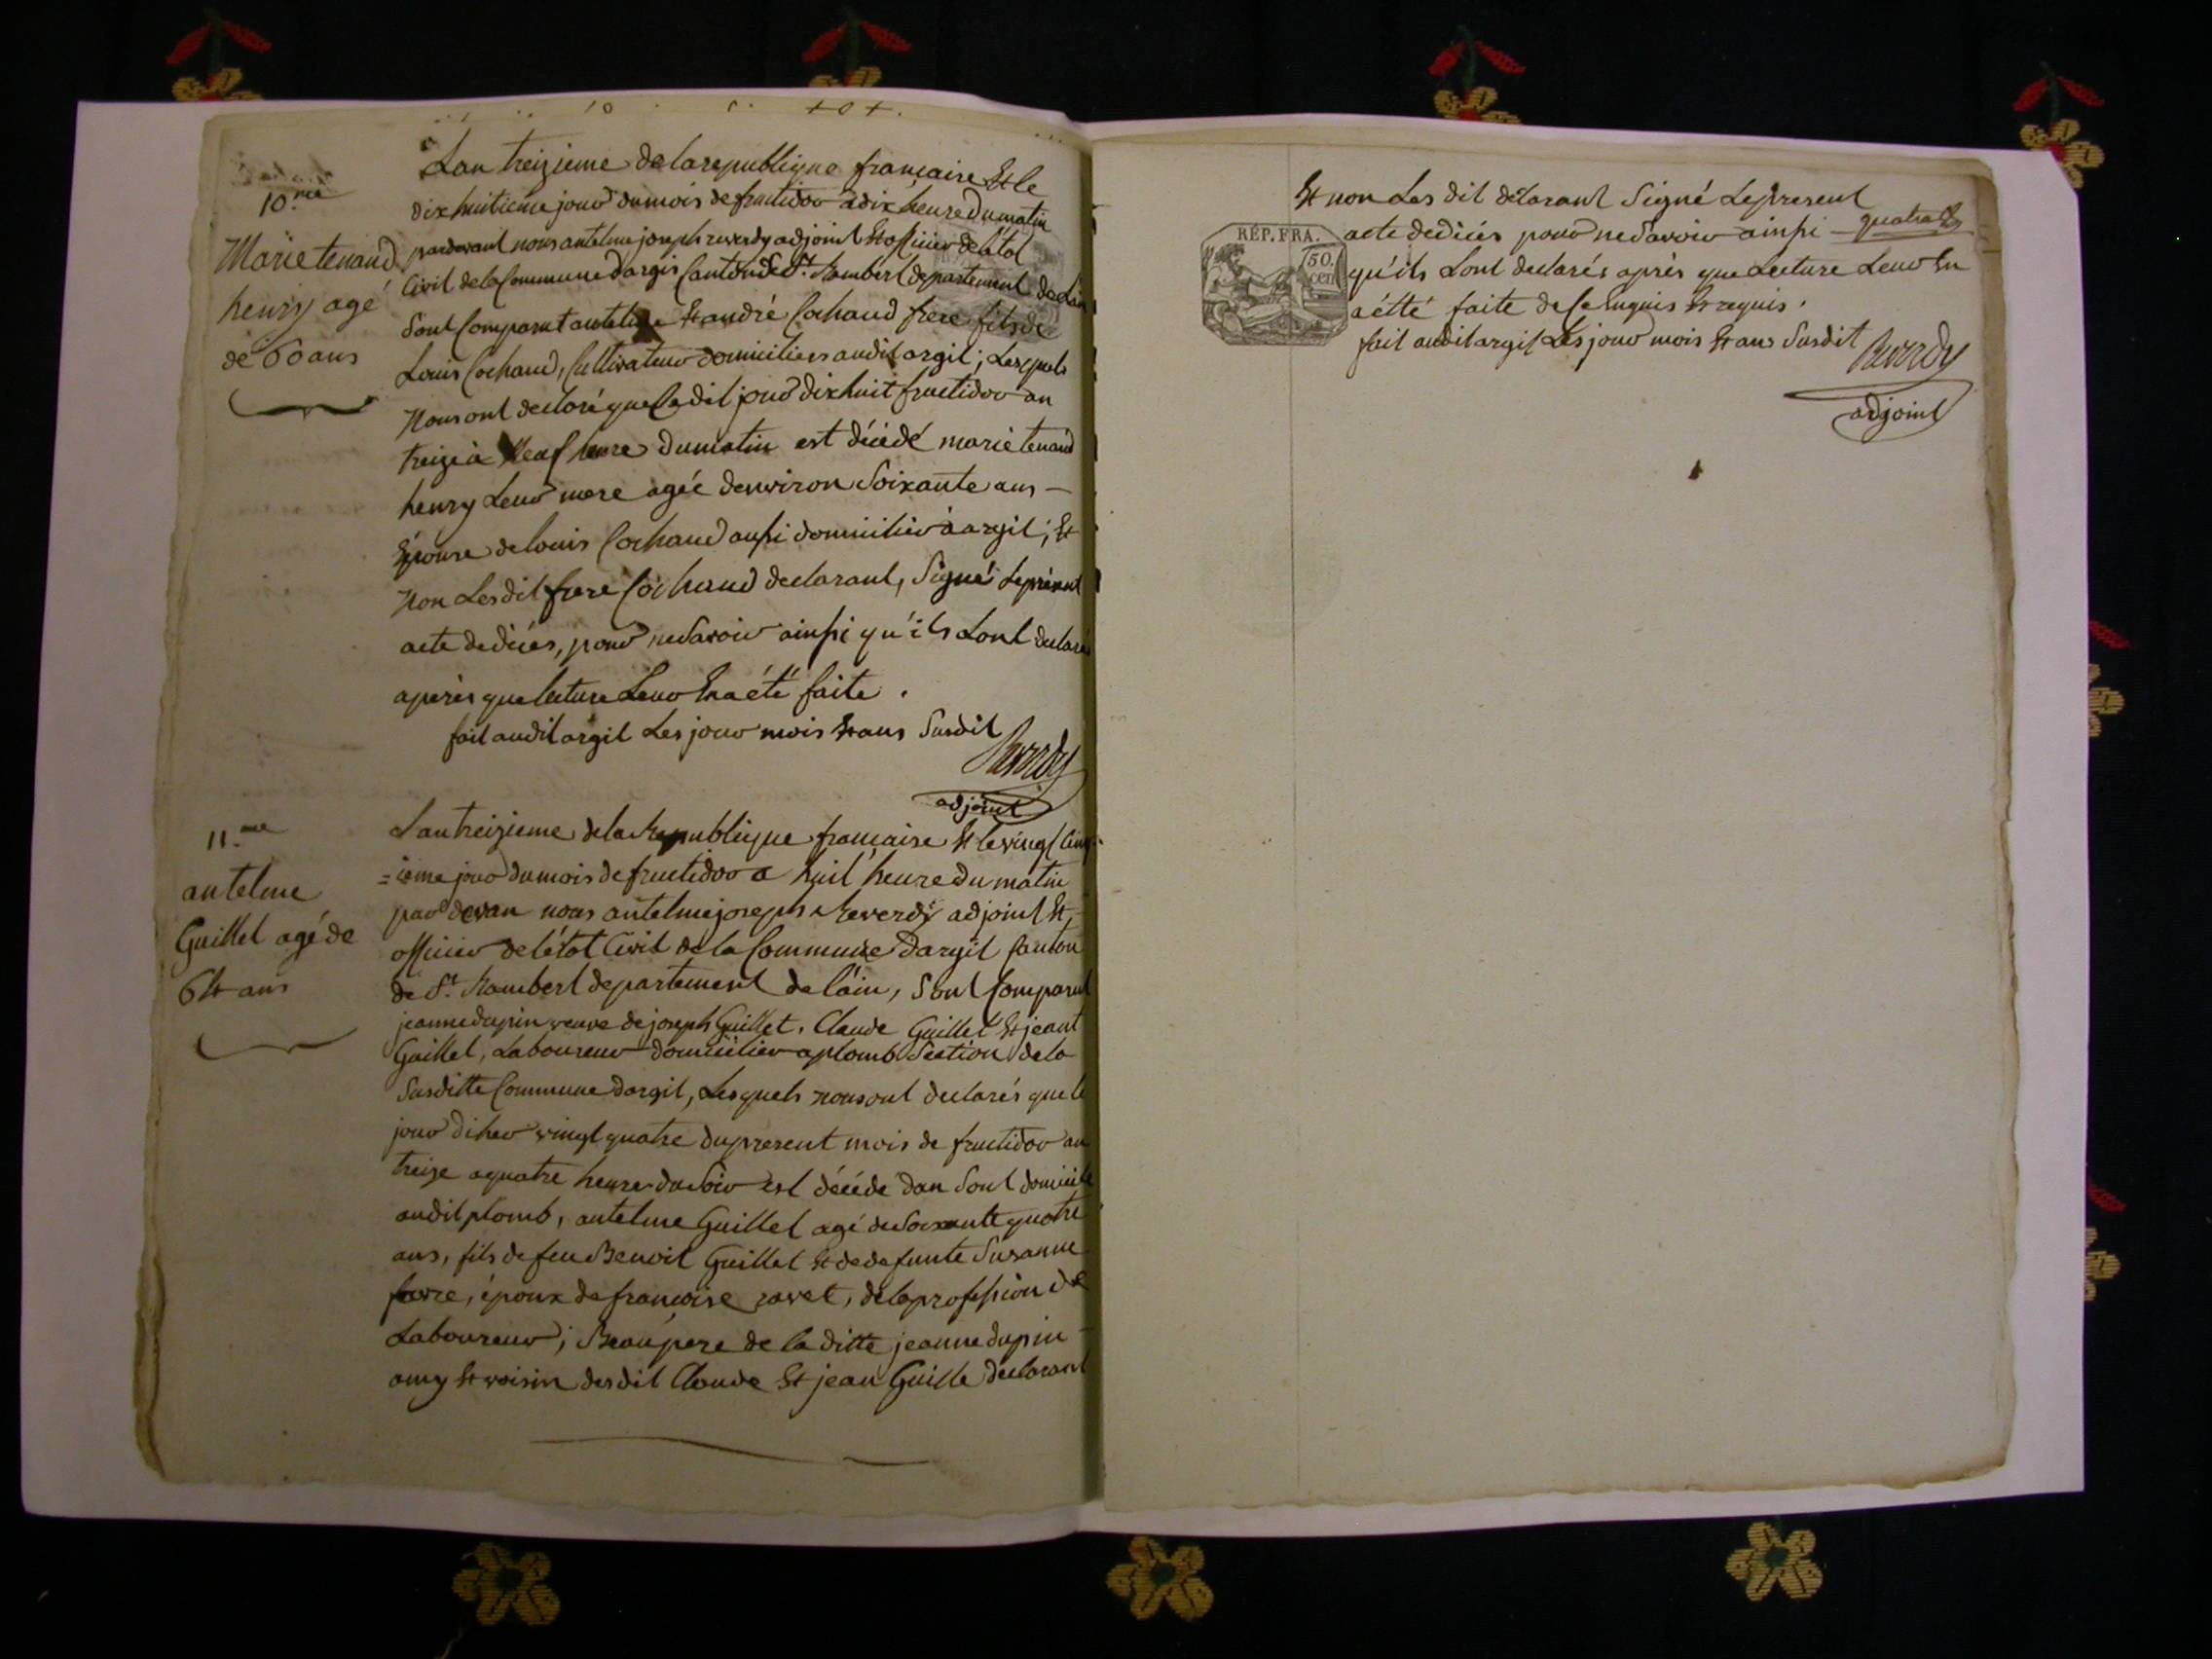 10.me
Marie tenand
henry agé
de 60 ans
Lan treizieme de la republique française Et le
dix huitieme jour du mois de fructidor a dix heure du matin
pardevant nous antelme joseph reverdy adjoint Et officier de létat
Civil de la Commune dargis Canton de St. Rambert département de Lain
Sont Comparut antelme Et andré Cochand frere fils de
Louis Cochand, Cultivateur domiciliers audit argil; Lesquels
Nous ont declaré que Ledit jour dix huit fructidor an
treize à Neuf heure du matin est décédé marie tenand
henry Leur mere agée denviron Soixante ans —
Epouse de louis Cochand aussi domicilier à argil; Et
Non Lesdit frere Cochand declarant, Signé Le présent
acte de décés, pour ne Savoir ainsi qu'ils Lont declarés
aperès que lecture Leur En a été faite.
fait audit argil Les jour mois Et ans Susdit
Reverdy
adjoint
11.me
antelme
Guillet agé de
64 ans
Lan treizieme de la Republique française Et le vingt Cinq
=ieme jour du mois de fructidor a huit heure du matin
par devan nous antelme joseph Reverdy adjoint Et
officier de létat Civil de la Commune dargil Canton
de St. Rambert departement de láin, Sont Comparut
jeanne dupin veuve de joseph Guillet, Claude Guillet Et jeant
Guillet, Laboureur domicilier a plomb Section de la
Susditte Commune dargil, Lesquels nous ont declarés que le
jour dihier vingt quatre du present mois de fructidor an
treize a quatre heure du Soir est décédé dan Sont domicile
audit plomb, antelme Guillet agé de Soixante quatre
ans, fils de feu Benoit Guillet Et de defunte Susanne
favre, époux de francoise ravet, de la profession de
Laboureur; Beaupere de la ditte jeanne dupin
amy Et voisin desdit Claude Et jean Guille declarant
Et non Les dit déclarant Signé Le present
RÉP. FRA. acte de décés pour ne Savoir ainsi —
50. qu'ils Lont declarés après que Lecture Leur En
cen a étté faite de Ce Enquis Et requis.
fait audit argil Les jour mois Et ans Susdit
Reverdy
adjoint